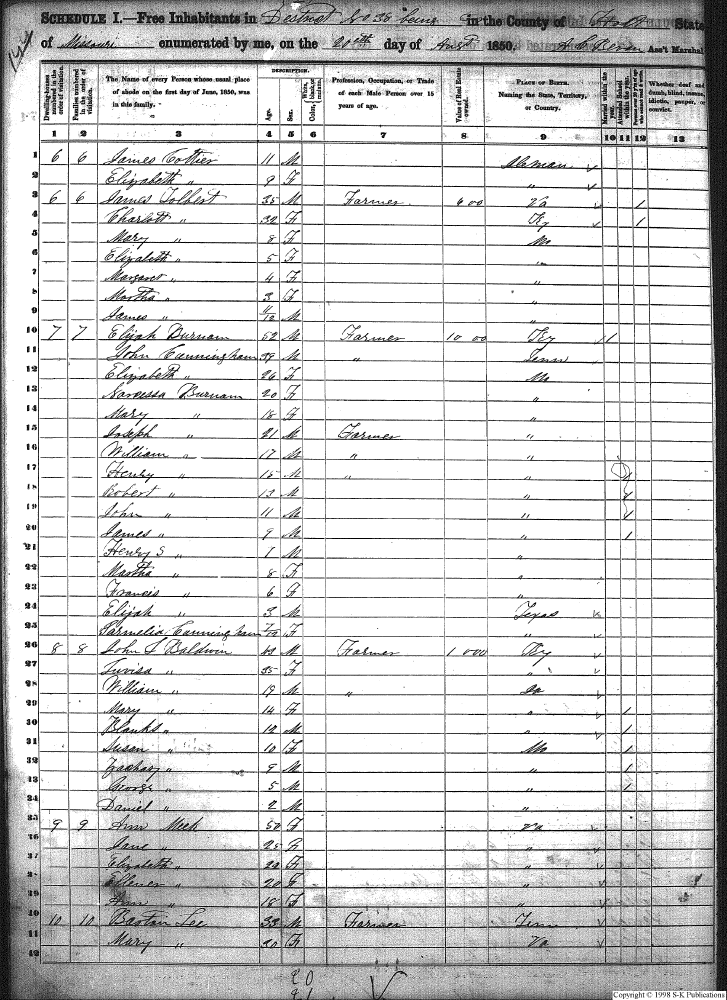 SCHEDULE I.—Free Inhabitants in District No 38 being in the County of Holt State
of Missouri enumerated by me, on the 20th day of Augst 1850. Ass't Marshal
DESCRIPTION.
Dwelling-houses numbered in the order of visitation.
Families numbered in the order of visitation.
The Name of every Person whose usual place of abode on the first day of June, 1850, was in this family.
Age.
Sex.
White, black, or mulatto.
Color,
Profession, Occupation, or Trade of each Male Person over 15 years of age.
Value of Real Estate owned.
PLACE OF BIRTH. Naming the State, Territory, or Country.
Married within the year.
Attended School within the year.
Whether deaf and dumb, blind, insane, idiotic, pauper, or convict.
1 2 3 4 5 6 7 8 9 10 11 12 13
1 6 6 James Cottier 11 M
2 Elizabeth " 9 F "
3 6 6 James Tolbert 35 M Farmer 600 Va 1
4 Charlott " 32 F Ky 1
5 Mary " 8 F Mo
6 Elizabeth " 5 F "
7 Margaret " 4 F "
8 Martha " 3 F "
9 James " M "
10 7 7 Elijah Burnam 52 M Farmer 1000 Ky
11 John Cunningham 39 M " Tenn
12 Elizabeth " 26 F Mo
13 Narcissa Burnam 20 F "
14 Mary " 18 F "
15 Joseph " 21 M Farmer "
16 William " 17 M " "
17 Henry " 15 M " "
18 Robert " 13 M " 1
19 John " 11 M " 1
20 James " 9 M " 1
21 Henry S " 1 M "
22 Martha " 8 F "
23 Francis " 6 F "
24 Elijah " 3 M Texas
25 Parmelia Cunningham F "
26 8 8 John S Baldwin M Farmer 1000 Ky
27 35 F "
28 William " 19 M " Ia
29 Mary " 14 F " 1
30 Blanks " 12 M " 1
31 Susen " 10 F Mo 1
32 Zachary " 9 M " 1
33 George " 5 M " 1
34 Daniel " 2 M "
35 9 9 Ann Meek 50 F Va
36 Jane " 25 F "
37 Elizabeth " 22 F "
38 Ellener " 20 F "
39 Ann " 18 F "
40 10 10 Baston Lee 33 M Farmer Tenn
41 Mary " 20 F Va
42
20
Copyright © 1998 S-K Publications